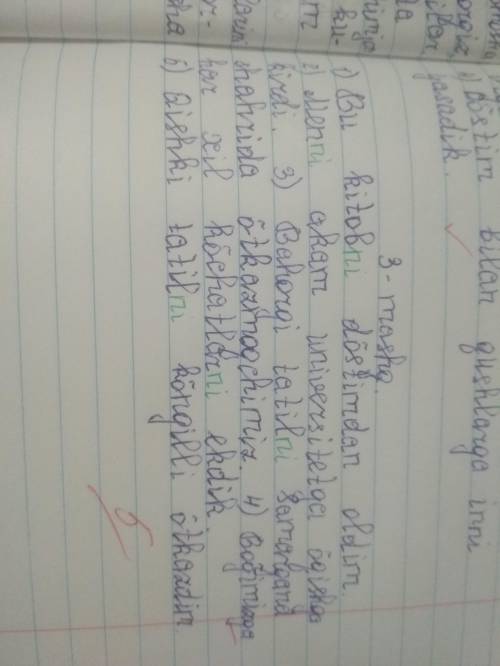 4) dõstim bilan qushlarga inni
yasadik.
3-mashq.
1) Bu kitobni dõstimdan oldim.
2) Meni akam universitetga õqishga
kirdi. 3) Bahorgi tatilni Samarqand
shahrida õtkazmoqchimiz. 4) Bog̃imizga
har xil kõchatlarni ekdik.
5) Qishki tatilni kõngilli õtkazdim.
5